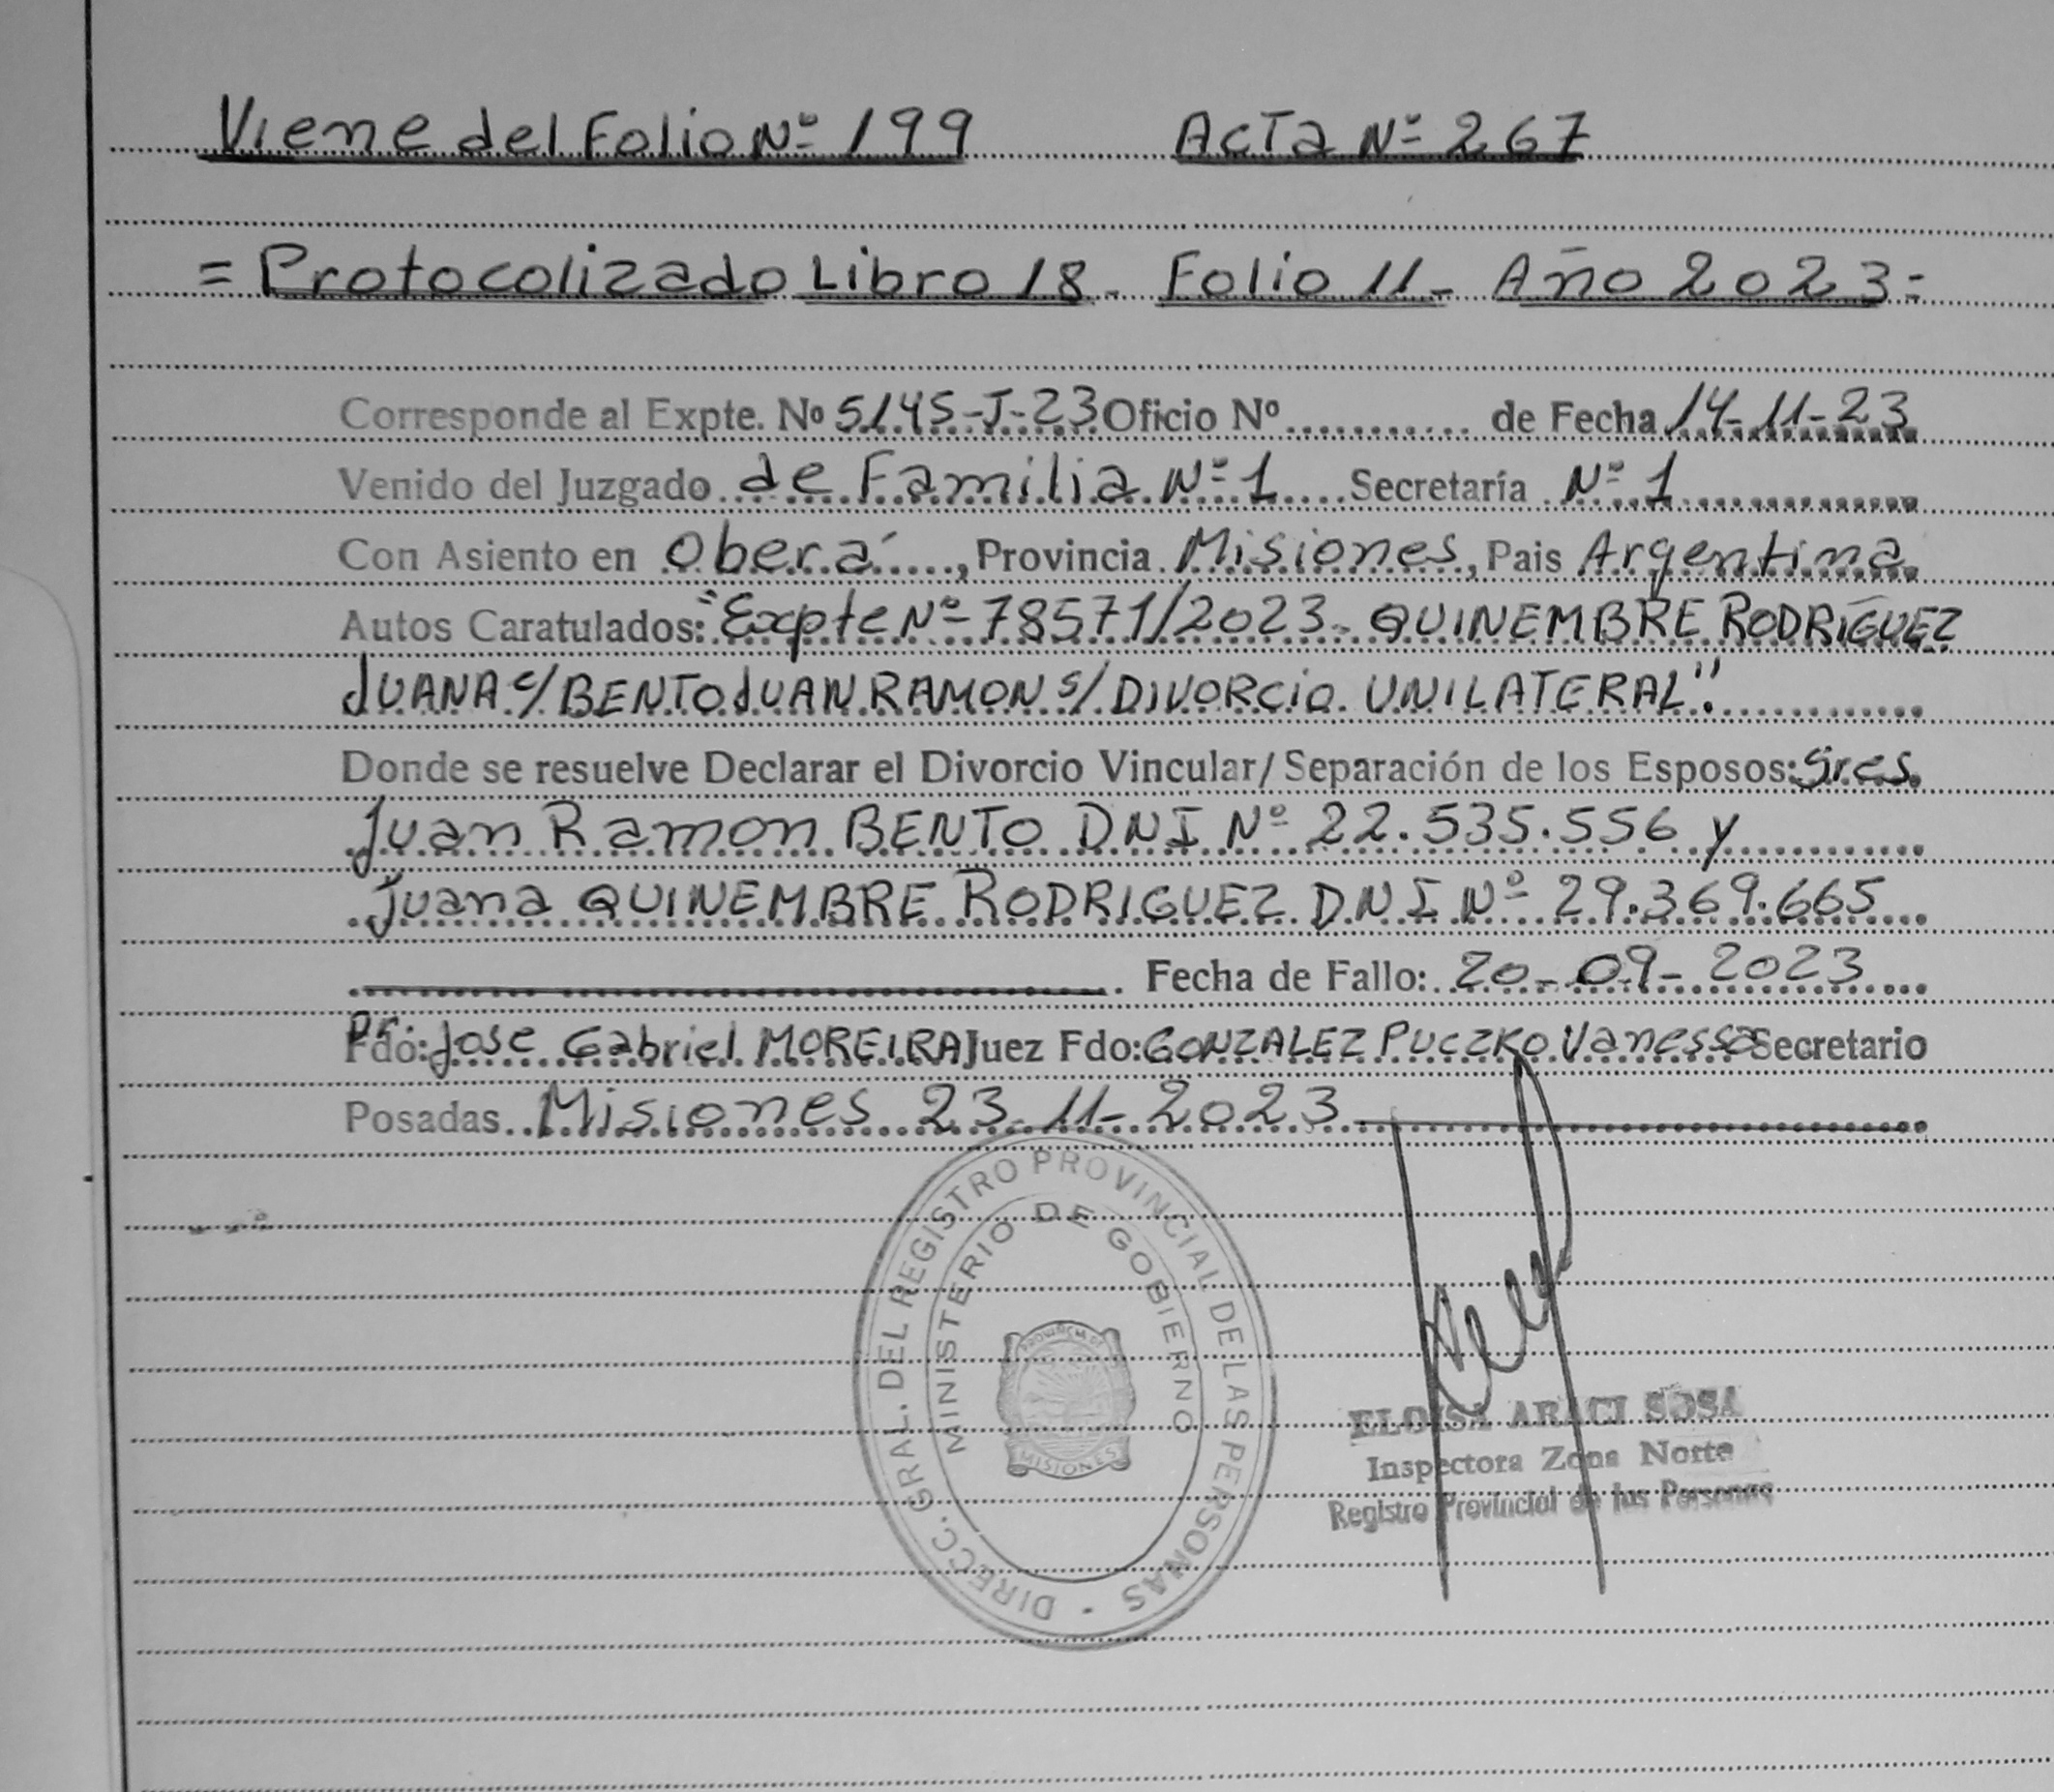 Viene del Folio Nº 199 Acta Nº 267
= Protocolizado Libro 18 - Folio 11 - Año 2023 =
Corresponde al Expte. Nº 5145-J-23 Oficio Nº ............ de Fecha 14-11-23
Venido del Juzgado de Familia Nº 1 Secretaría Nº 1
Con Asiento en Oberá, Provincia Misiones, Pais Argentina
Autos Caratulados: "Expte Nº 78571/2023 - QUINEMBRE RODRÍGUEZ
JUANA c/ BENTO JUAN RAMON s/ DIVORCIO UNILATERAL".
Donde se resuelve Declarar el Divorcio Vincular/Separación de los Esposos: Sres.
Juan Ramon BENTO DNI Nº 22.535.556 y
Juana QUINEMBRE RODRIGUEZ DNI Nº 29.369.665
Fecha de Fallo: 20-09-2023
Fdo: Dr. Jose Gabriel MOREIRA Juez Fdo: GONZALEZ PUCZKO Vanessa Secretario
Posadas Misiones 23-11-2023
DIRECC. GRAL. DEL REGISTRO PROVINCIAL DE LAS PERSONAS -
MINISTERIO DE GOBIERNO
PROVINCIA DE
MISIONES
ELOISA ARACI SOSA
Inspectora Zona Norte
Registro Provincial de las Personas